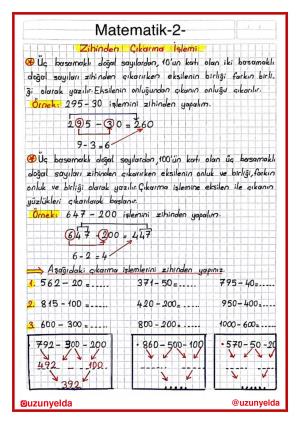 Matematik-2-
Zihinden Çıkarma İşlemi
Üç basamaklı doğal sayılardan, 10'un katı olan iki basamaklı
doğal sayıları zihinden çıkarırken eksilenin birliği farkın birli-
ği olarak yazılır. Eksilenin onluğundan çıkanın onluğu çıkarılır.
Örnek: 295-30 işlemini zihinden yapalım.
295-30=260
9-3=6
Üç basamaklı doğal sayılardan, 100'ün katı olan üç basamaklı
doğal sayıları zihinden çıkarırken eksilenin onluk ve birliği, farkın
onluk ve birliği olarak yazılır. Çıkarma işlemine eksilen ile çıkanın
yüzlükleri çıkarılarak başlanır.
Örnek: 647-200 işlemini zihinden yapalım.
647-200=447
6-2=4
Aşağıdaki çıkarma işlemlerini zihinden yapınız.
1. 562-20=...... 371-50=...... 795-40=......
2. 815-100=...... 420-200=...... 950-400=......
3. 600-300=...... 800-200=...... 1000-600=......
792-300-200 860-500-100 570-50-20
492 100
392
@uzunyelda @uzunyelda